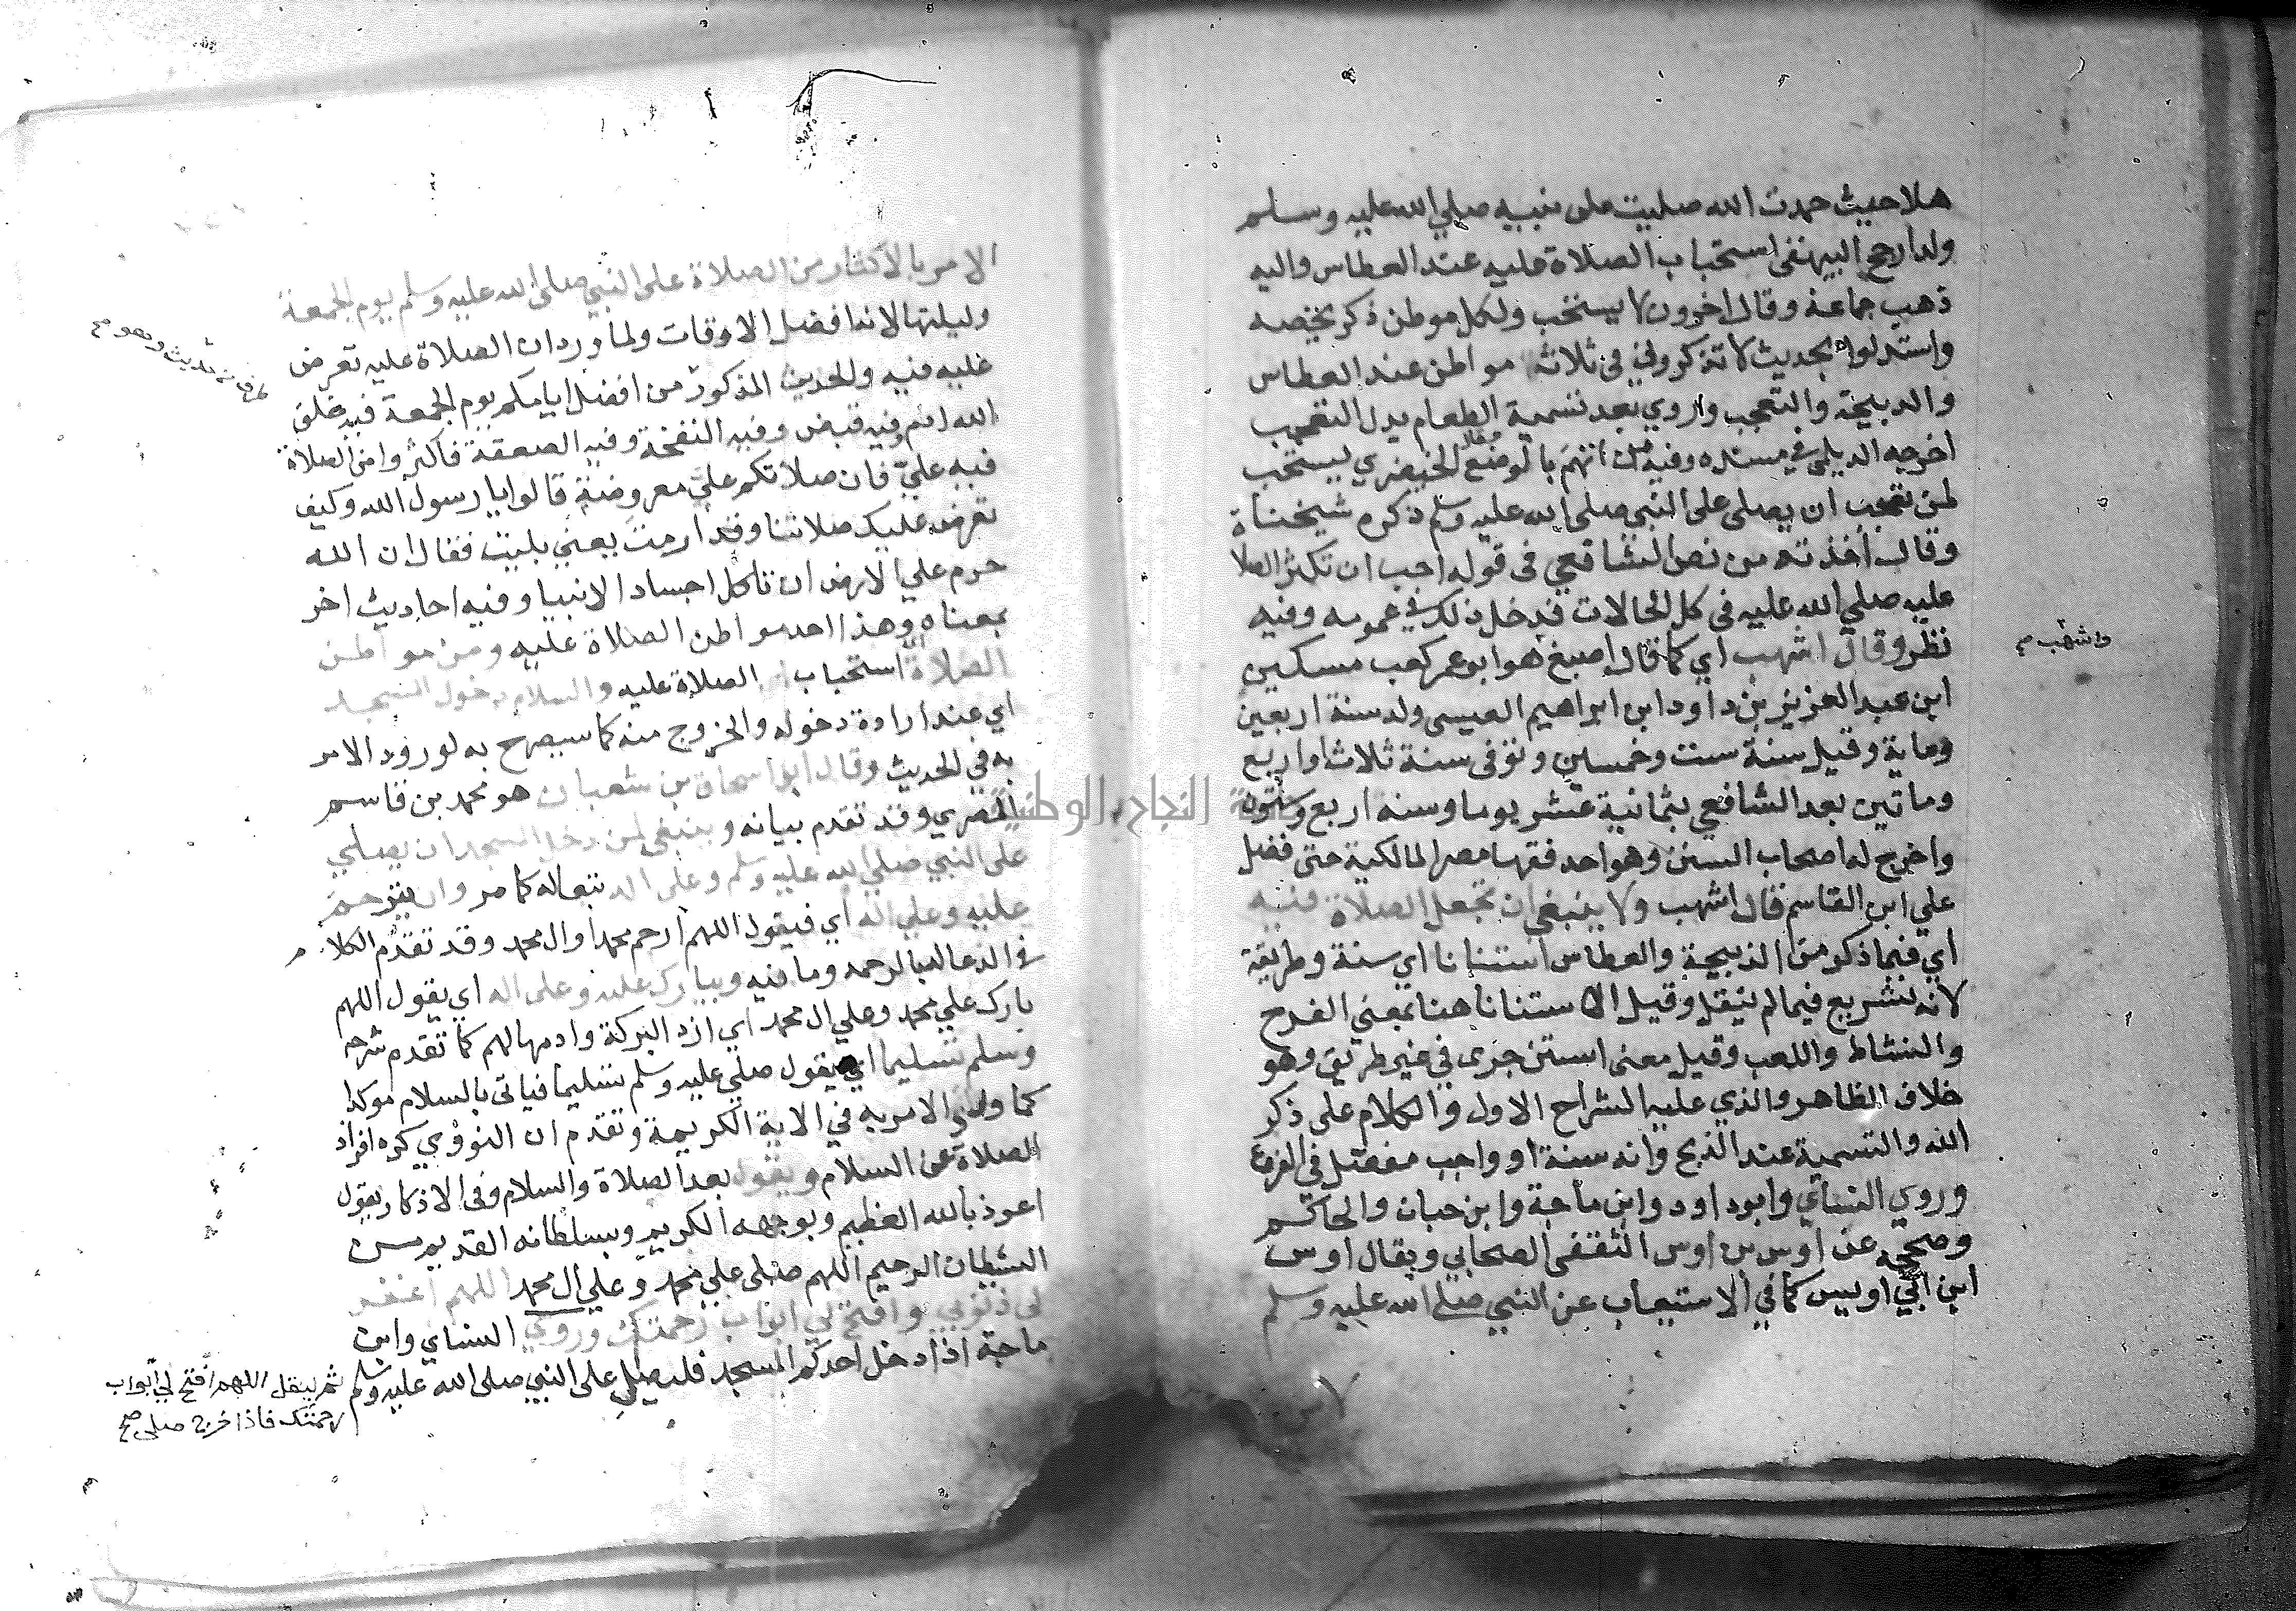 هلا حيث حمدت الله صليت على نبيه صلي الله عليه وسلم
ولذا رجح البيهقى استحباب الصلاة عليه عند العطاس واليه
ذهب جماعة وقال اخرون لا يستحب ولكل موطن ذكر يخصه
واستدلوا بحديث لا تذكروني فى ثلاثة مواطن عند العطاس
والدبيحة والتعجب وروي بعد تسمية الطعام بدل التعجب
اخرجه الديلمي في مسنده وفيه من اتهم بالوضع وقال الخيضري يستحب
لمن تعجب ان يصلى على النبي صلى الله عليه وسلم ذكره شيخنا
وقال أخذته من نص الشافعي فى قوله احب ان تكثر الصلا
عليه صلي الله عليه فى كل الحالات فدخل ذلك في عمومه وفيه
نظر وقال اشهب اي كما قال اصبغ هو ابو عمر كعب مسكين
ابن عبد العزيز بن داود ابن ابراهيم العيسى ولد سنة اربعين
وماية وقيل سنة ست وخمسين وتوفى سنة ثلاث او اربع
وماتين بعد الشافعي بثمانية عشر يوما وسنه اربع وستون
واخرج له اصحاب السنن وهو احد فقها مصر المالكية حتى فضل
علي ابن القاسم قال اشهب ولا ينبغي ان تجعل الصلاة فيه
اي فيما ذكر من الذبيحة والعطاس استنانا اي سنة وطريقة
لانه تشريع فيما لم ينقل وقيل الاستنانا هنا بمعني الفرح
والنشاط واللعب وقيل معنى استن جرى في غير طريق وهو
خلاف الظاهر والذي عليه الشراح الاول والكلام على ذكر
الله والتسمية عند الذبح وانه سنة او واجب مفصل فى الفروع
وروي النساي وابو داود وابن ماجة وابن حبان والحاكم
وصححه عن اوس بن اوس الثقفى الصحابي ويقال اوس
ابن ابي اويس كما في الاستيعاب عن النبي صلى الله عليه وسلم
واشهب
الامر بالاكثار من الصلاة على النبي صلى الله عليه وسلم يوم الجمعة
وليلتها لانها افضل الاوقات ولما ورد ان الصلاة عليه تعرض
عليه فيه والحديث المذكور من افضل ايامكم يوم الجمعة فيه خلق
الله ادم وفيه قبض وفيه النفخة وفيه الصعقة فاكثروا من الصلاة
فيه عليّ فان صلاتكم عليّ معروضة قالوا يا رسول الله وكيف
تعرض عليك صلاتنا وقد ارمت يعني بليت فقال ان الله
حرم علي الارض ان تاكل اجساد الانبيا وفيه احاديث اخر
بمعناه وهذا احد مواطن الصلاة عليه ومن مواطن
الصلاة استحباب الصلاة عليه والسلام دخول المسجد
اي عند ارادة دخوله والخروج منه كما سيصرح به لورود الامر
به في الحديث وقال ابو اسحاق بن شعبان هو محمد بن قاسم
المصري وقد تقدم بيانه وينبغى لمن دخل المسجد ان يصلي
على النبي صلي الله عليه وسلم وعلى اله تبعا له كما مر وان يترحم
عليه وعلي اله أي فيقول اللهم ارحم محمدا وال محمد وقد تقدم الكلام
في الدعا له بالرحمه وما فيه ويبارك عليه وعلى اله اي يقول اللهم
بارك علي محمد وعلي ال محمد اي ازد البركة وادمها لهم كما تقدم شرحه
وسلم تسليما اي يقول صلي عليه وسلم تسليما فياتى بالسلام موكدا
كما ولي الامر به في الاية الكريمة وتقدم ان النووي كره افراد
الصلاة عن السلام ويقول بعد الصلاة والسلام وفى الاذكار يقول
اعوذ بالله العظيم وبوجهه الكريم وبسلطانه القديم من
الشيطان الرجيم اللهم صلى علي محمد وعلي ال محمد اللهم اغفر
لى ذنوبي وافتح لي ابواب رحمتك وروي النساي وابن
ماجة اذا دخل احدكم المسجد فليصل على النبي صلى الله عليه وسلم
ثم ليقل اللهم افتح لي ابواب
رحمتك فاذا خرج صلى صح
جامعة النجاح الوطنية